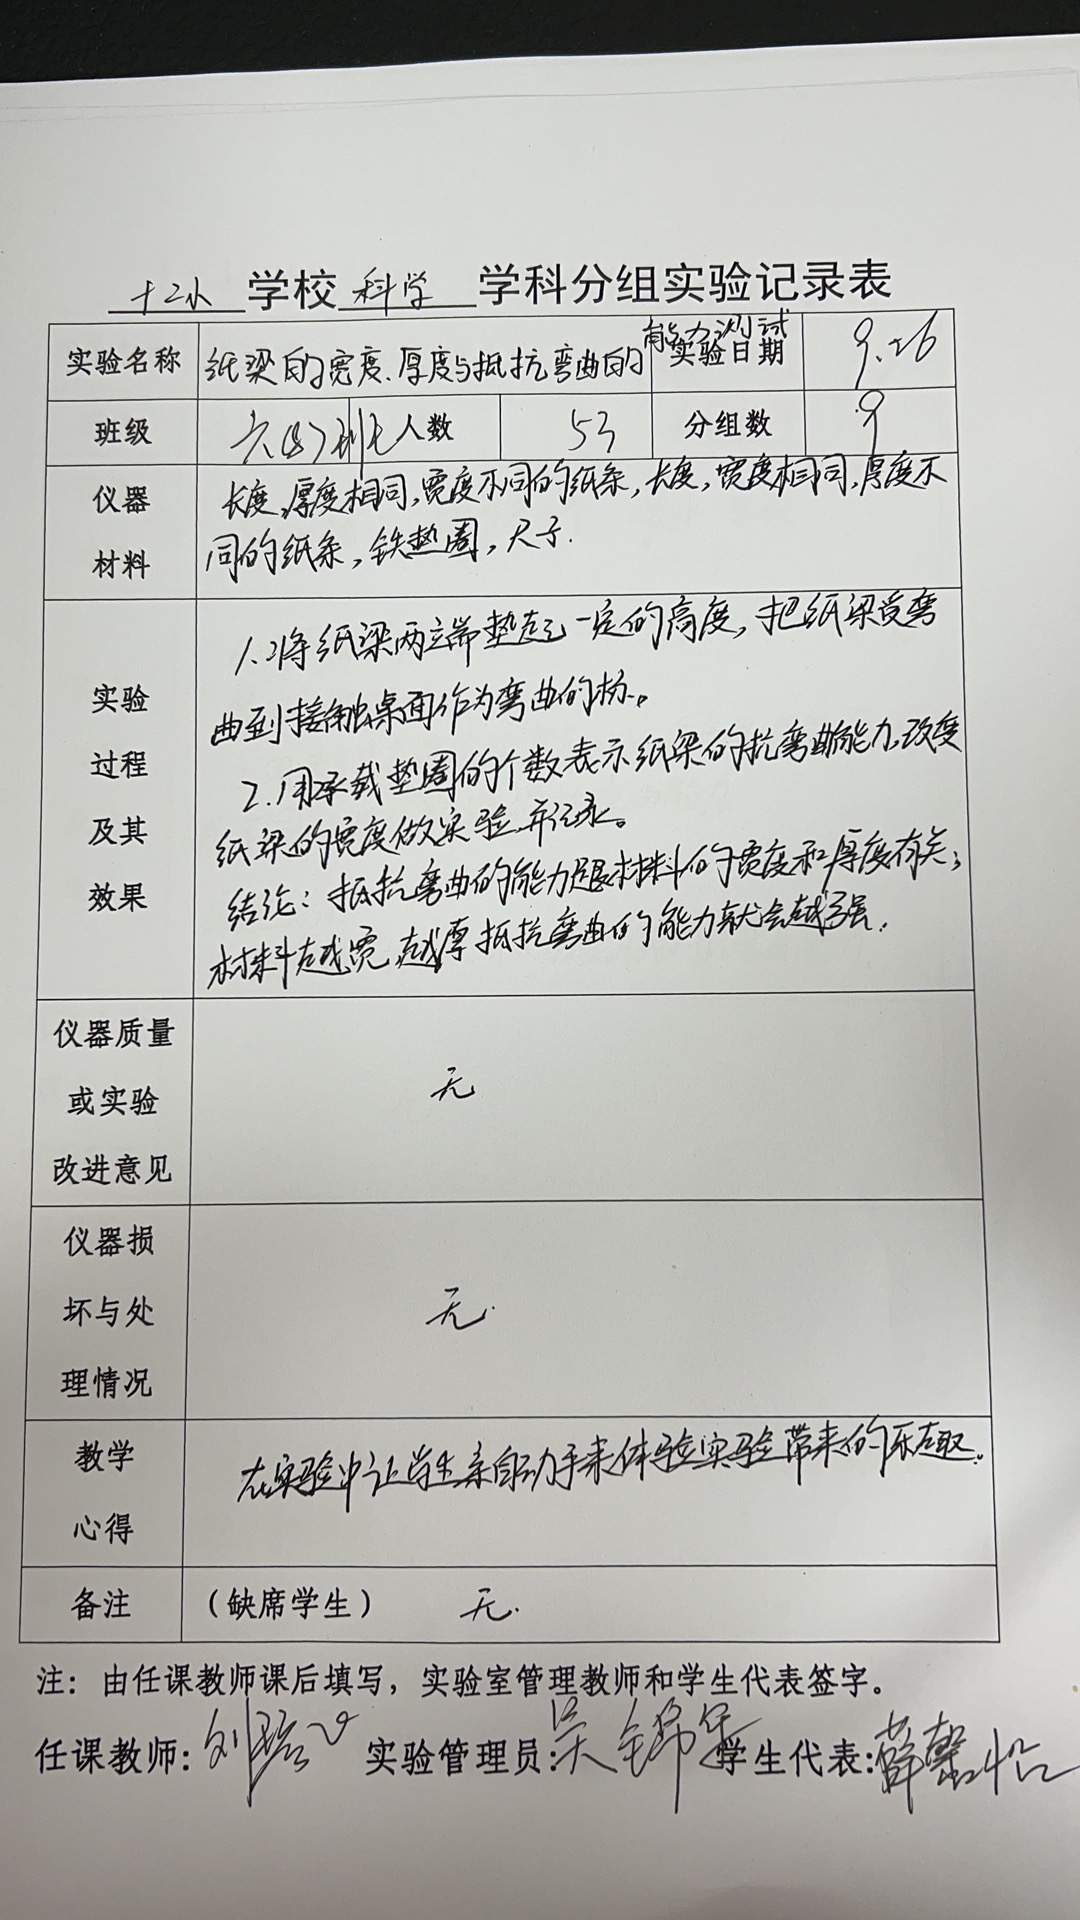 十二小 学校 科学 学科分组实验记录表
实验名称 纸梁的宽度、厚度与抵抗弯曲的能力测试 实验日期 9.26
班级 六(8)班 人数 53 分组数 9
仪器材料
长度,厚度相同,宽度不同的纸条,长度,宽度相同,厚度不
同的纸条,铁垫圈,尺子.
实验过程及其效果
1.将纸梁两端垫起一定的高度,把纸梁受弯
曲到接触桌面作为弯曲的标。
2.用承载垫圈的个数表示纸梁的抗弯曲能力,改变
纸梁的宽度做实验,并记录。
结论:抵抗弯曲的能力跟材料的宽度和厚度有关;
材料越宽,越厚抵抗弯曲的能力就会越强.
仪器质量或实验改进意见
无
仪器损坏与处理情况
无.
教学心得
在实验中让学生亲自动手来体验实验带来的乐趣.
备注 (缺席学生) 无.
注:由任课教师课后填写,实验室管理教师和学生代表签字。
任课教师: 实验管理员:吴锦华 学生代表:薛馨怡